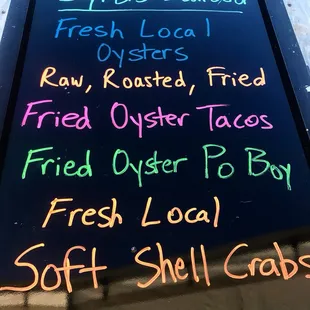 Fresh Local
Oysters
Raw, Roasted, Fried
Fried Oyster Tacos
Fried Oyster Po Boy
Fresh Local
Soft Shell Crabs